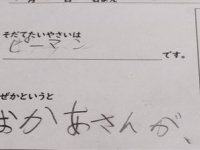 そだてたいやさいは
ピーマン
です。
ぜかというと
おかあさんが、